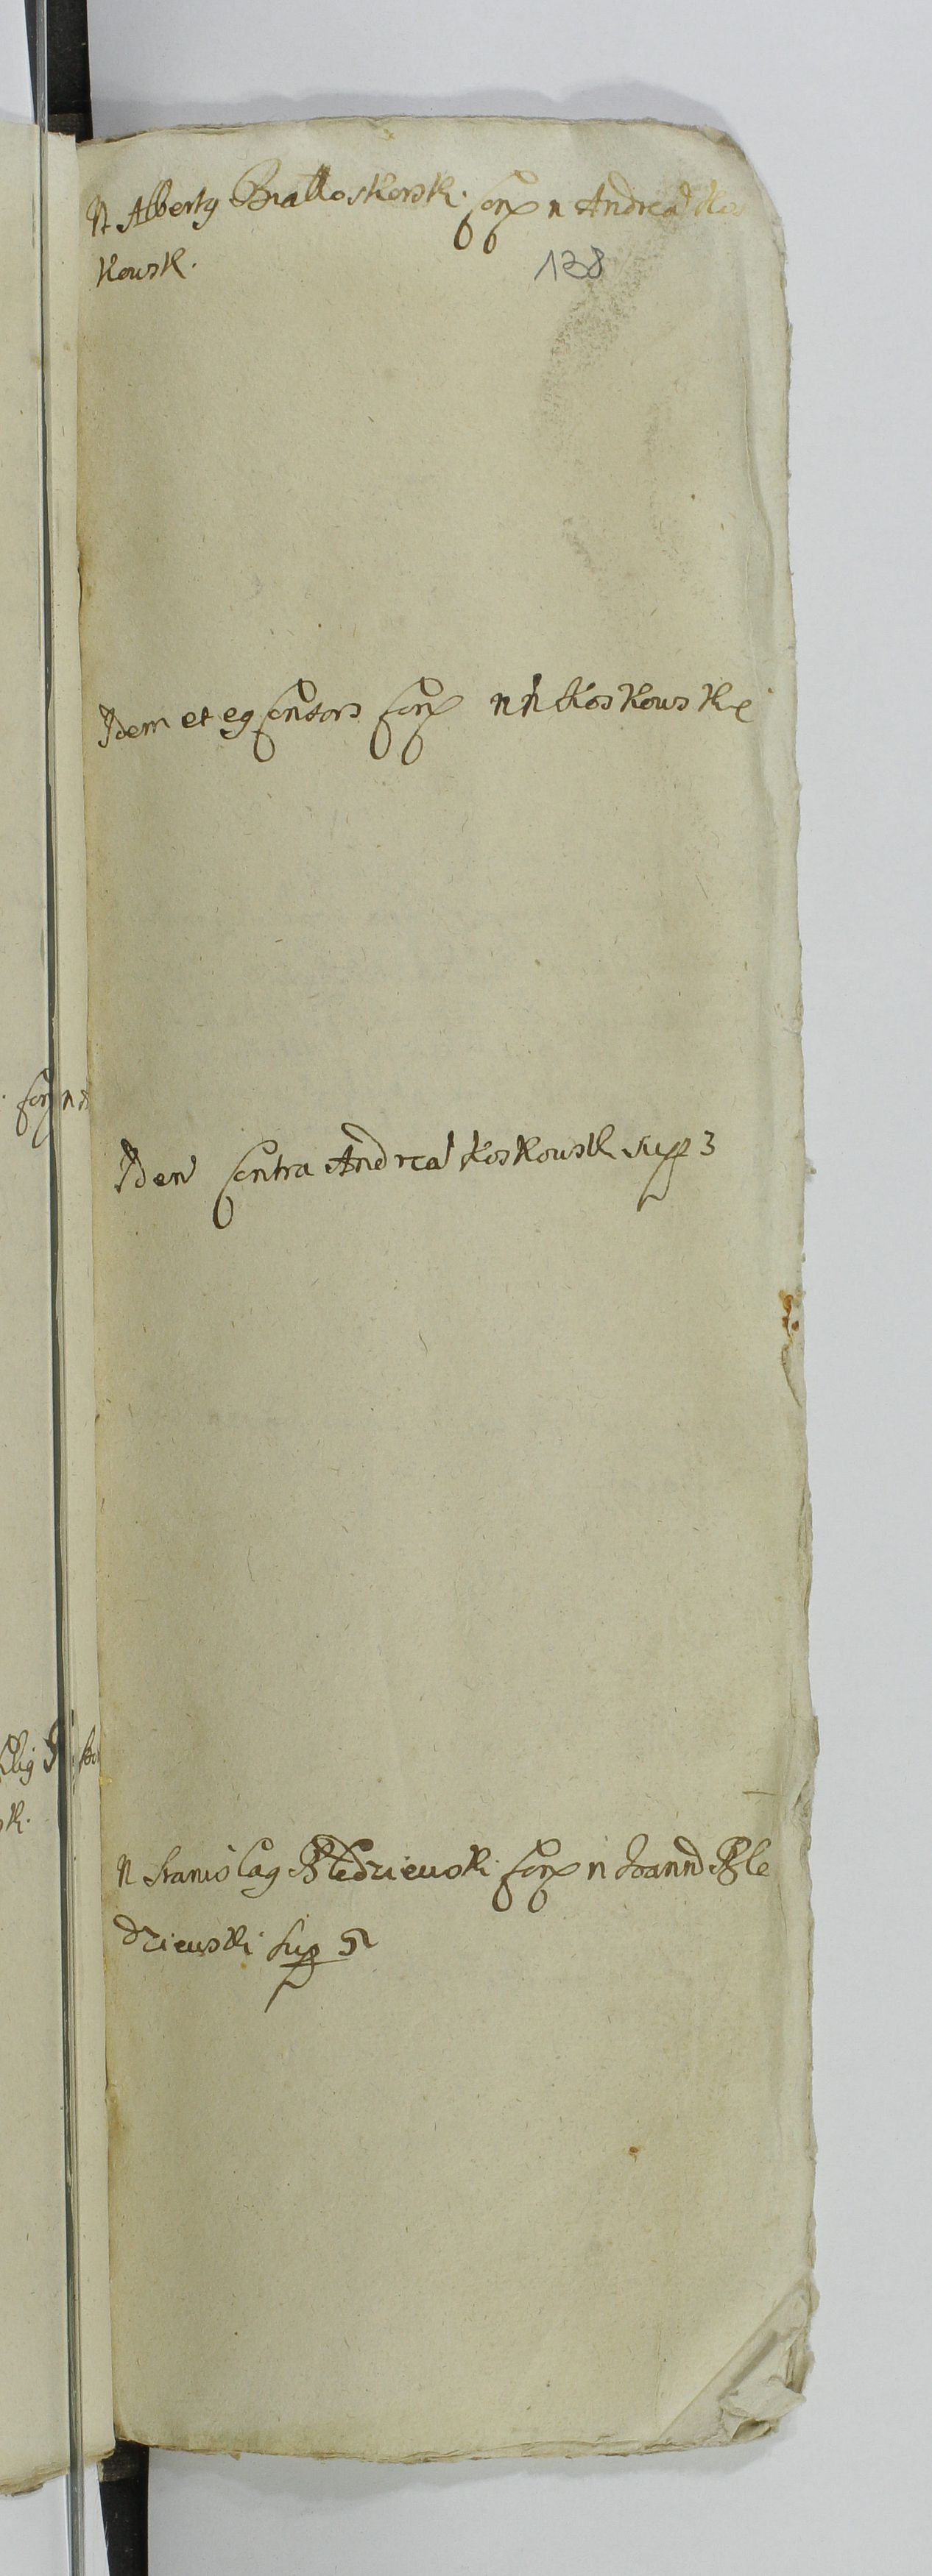 N Alberty Białłoskorsk. Conx n Andrea Kos
kowsk.
138
Idem et eg Consors Conx nn Koskowske
Idem Contra Andrea Koskowsk supp 3
N Stanislag Bledziewski Conx n Joann Ble
dziewski sup 5